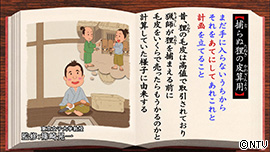 【捕らぬ狸の皮算用】
まだ手に入らないうちから
それをあてにしてあれこれと
計画を立てること
昔、狸の毛皮は高値で取引されており
猟師が狸を捕まえる前に
毛皮をいくらで売ったらもうかるのかと
計算していた様子に由来する
©NTV